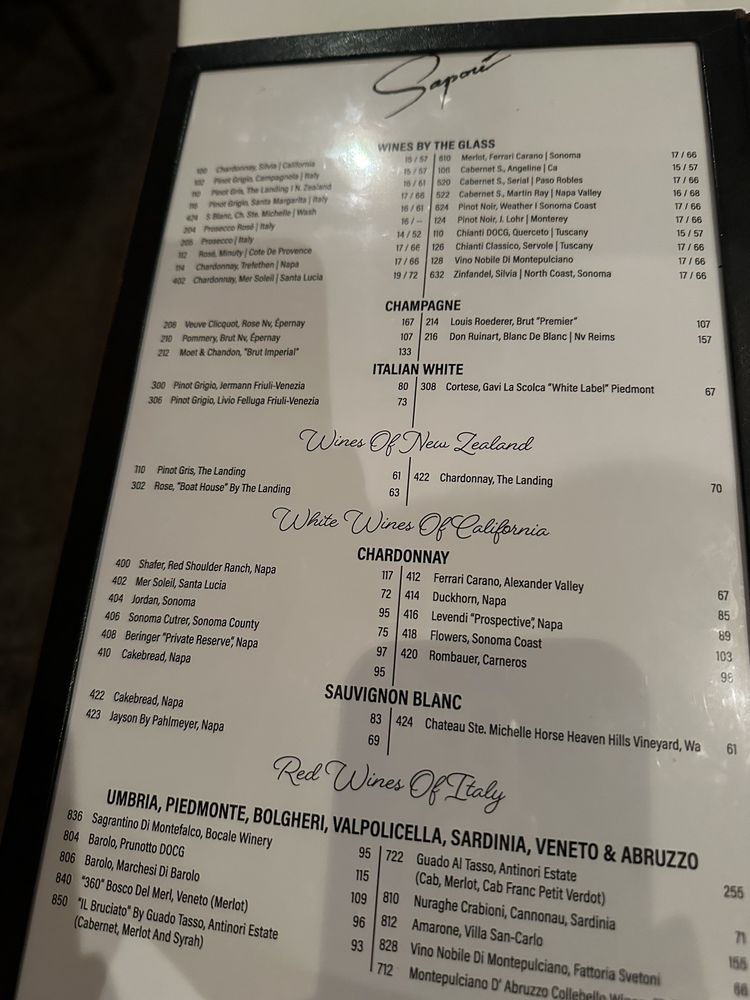 Saporé
WINES BY THE GLASS
100 Chardonnay, Silvia | California 15 / 57 610 Merlot, Ferrari Carano | Sonoma 17 / 66
102 Pinot Grigio, Campagnola | Italy 15 / 57 106 Cabernet S., Angeline | Ca 15 / 57
110 Pinot Gris, The Landing | N. Zealand 16 / 61 520 Cabernet S., Serial | Paso Robles 17 / 66
Pinot Grigio, Santa Margarita | Italy 17 / 66 522 Cabernet S., Martin Ray | Napa Valley 16 / 68
424 S Blanc, Ch. Ste. Michelle | Wash 16 / 61 624 Pinot Noir, Weather | Sonoma Coast 17 / 66
204 Prosecco Rosé | Italy 16 / -- 124 Pinot Noir, J. Lohr | Monterey 17 / 66
Prosecco | Italy 14 / 52 110 Chianti DOCG, Querceto | Tuscany 15 / 57
112 Rosé, Minuty | Cote De Provence 17 / 66 126 Chianti Classico, Servole | Tuscany 17 / 66
114 Chardonnay, Trefethen | Napa 17 / 66 128 Vino Nobile Di Montepulciano 17 / 66
402 Chardonnay, Mer Soleil | Santa Lucia 19 / 72 632 Zinfandel, Silvia | North Coast, Sonoma 17 / 66
CHAMPAGNE
208 Veuve Clicquot, Rose Nv, Épernay 167 214 Louis Roederer, Brut "Premier" 107
210 Pommery, Brut Nv, Épernay 107 216 Don Ruinart, Blanc De Blanc | Nv Reims 157
212 Moet & Chandon, "Brut Imperial" 133
ITALIAN WHITE
300 Pinot Grigio, Jermann Friuli-Venezia 80 308 Cortese, Gavi La Scolca "White Label" Piedmont 67
306 Pinot Grigio, Livio Felluga Friuli-Venezia 73
Wines Of New Zealand
110 Pinot Gris, The Landing 61 422 Chardonnay, The Landing 70
302 Rose, "Boat House" By The Landing 63
White Wines Of California
CHARDONNAY
400 Shafer, Red Shoulder Ranch, Napa 117 412 Ferrari Carano, Alexander Valley 67
402 Mer Soleil, Santa Lucia 72 414 Duckhorn, Napa 85
404 Jordan, Sonoma 95 416 Levendi "Prospective", Napa 89
406 Sonoma Cutrer, Sonoma County 75 418 Flowers, Sonoma Coast 103
408 Beringer "Private Reserve", Napa 97 420 Rombauer, Carneros 98
410 Cakebread, Napa 95
SAUVIGNON BLANC
422 Cakebread, Napa 83 424 Chateau Ste. Michelle Horse Heaven Hills Vineyard, Wa 61
423 Jayson By Pahlmeyer, Napa 69
Red Wines Of Italy
UMBRIA, PIEDMONTE, BOLGHERI, VALPOLICELLA, SARDINIA, VENETO & ABRUZZO
836 Sagrantino Di Montefalco, Bocale Winery 95 722 Guado Al Tasso, Antinori Estate
(Cab, Merlot, Cab Franc Petit Verdot) 255
804 Barolo, Prunotto DOCG 115
806 Barolo, Marchesi Di Barolo 109 810 Nuraghe Crabioni, Cannonau, Sardinia 71
840 "360" Bosco Del Merl, Veneto (Merlot) 96 812 Amarone, Villa San-Carlo 155
850 "IL Bruciato" By Guado Tasso, Antinori Estate 93 828 Vino Nobile Di Montepulciano, Fattoria Svetoni 66
(Cabernet, Merlot And Syrah) 712 Montepulciano D' Abruzzo Collebello